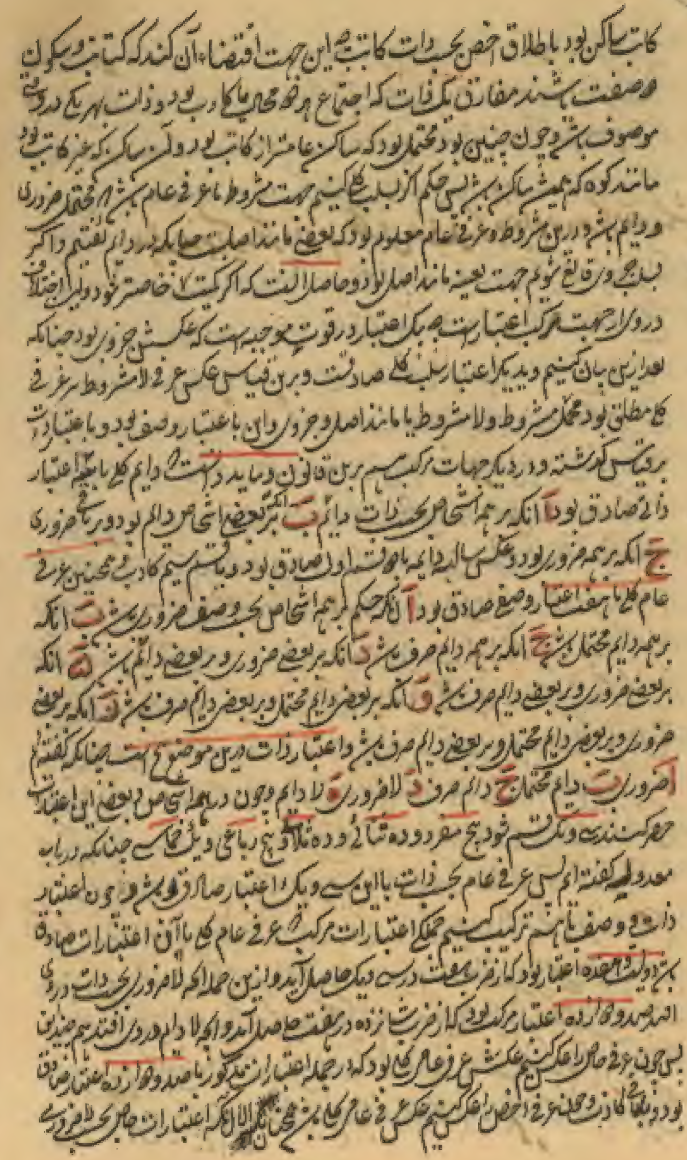 کاتب ساکن بود باطلاق اخص بحسب ذات کاتب و این جهت اقتضاء آن کند که کتابت و سکون
دو صفت باشند مفارق یک ذات که اجتماع هر دو محال یا کاذب بود و ذات بهر یکی در وقتی
موصوف باشد و چون چنین بود محتمل بود که ساکن عامتر از کاتب بود و آن ساکن که غیر کاتب بود
مانند کوه که همیشه ساکن باشد پس حکم اگر بسلب کلی کنیم جهت مشروط یا عرفی عام باشد که محتمل ضروری
و دایم باشد و درین مشروط و عرفی عام معلوم بود که بعضی مانند اصلست چنانکه در دایم گفتیم و اگر
بسلب جزوی قانع شویم جهت بعینه مانند اصل بود و حاصل آنست که اگر کمیت خاصتر شود این اختلاف
در وی از جهت ترکب اعتبارست بیک اعتبار در قوت موجبه است که عکسش جزوی بود چنانکه
بعد ازین بیان کنیم و بدیگر اعتبار سلب کلی صادقست و برین قیاس عکس عرفی لامشروط عرفی
کلی مطلق بود محتمل مشروط و لامشروط یا مانند اصل و جزوی و این باعتبار وصف بود و باعتبار ذات
بر قیاس گذشته و در دیگر جهات ترکب هم برین قانون و بباید دانست که دایم کلی باعتبار
ذاتی صادق بود ا آنکه بر همه اشخاص بحسب ذات دایم ب آنکه بر بعضی اشخاص دایم بود و بر باقی ضروری
ج آنکه بر همه ضروری بود و عکس سالبه دایمه با دو قسم اول صادق بود و با قسم سیم کاذب و همچنین عرفی
عام کلی با هفت اعتبار وصفی صادق بود ا آنکه حکم بر همه اشخاص بحسب وصف ضروری باشد ب آنکه
بر همه دایم محتمل باشد ج آنکه بر همه دایم صرف باشد د آنکه بر بعضی ضروری و بر بعضی دایم باشد ه آنکه
بر بعضی ضروری و بر بعضی دایم صرف باشد و آنکه بر بعضی دایم محتمل و بر بعضی دایم صرف باشد ز آنکه بر بعضی
ضروری و بر بعضی دایم محتمل و بر بعضی دایم صرف باشد و اعتبار ذات درین موضوع است چنانکه گفته‌ایم
ا ضروری ب دایم محتمل ج دایم صرف د لاضروری ه لا دایم و چون در همه اشخاص و بعضی این اعتبارات
حصر کنند سی و یک قسم شود پنج مفرد و ده ثنائی و ده ثلاثی و پنج رباعی و یک خماسی چنانکه در باب
معدولیه گفته‌ایم پس عرفی عام بحسب ذات با این سی و یک اعتبار صادق باشد و چون اعتبار
ذات و وصف با هم ترکیب کنیم جملگی اعتبارات مرکب که عرفی عام کلی با آن اعتبارات صادق
باشد دویست و هفده اعتبار بود که از ضرب هفت در سی و یک حاصل آید و ازین جمله آنچه لاضروری بحسب ذات در وی
افتد صد و دوازده اعتبار مرکب بود که از ضرب شانزده در هفت حاصل آید و آنچه لا دایم در وی افتد هم چندین
پس چون عرفی خاص را عکس کنیم عکسش عرفی عام کلی بود که از جمله اعتبارات مذکور با صد و دوازده اعتبار صادق
بود و با باقی کاذب و چون عرفی اخص را عکس کنیم عکس عرفی عام کلی باشد همچنان الا آنکه اعتبارات خاص بحسب لاضروری